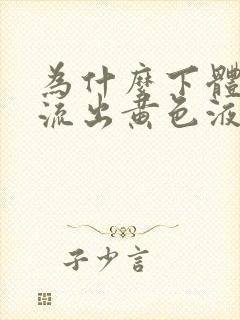 为什麼下體
流出黄色液
子少言